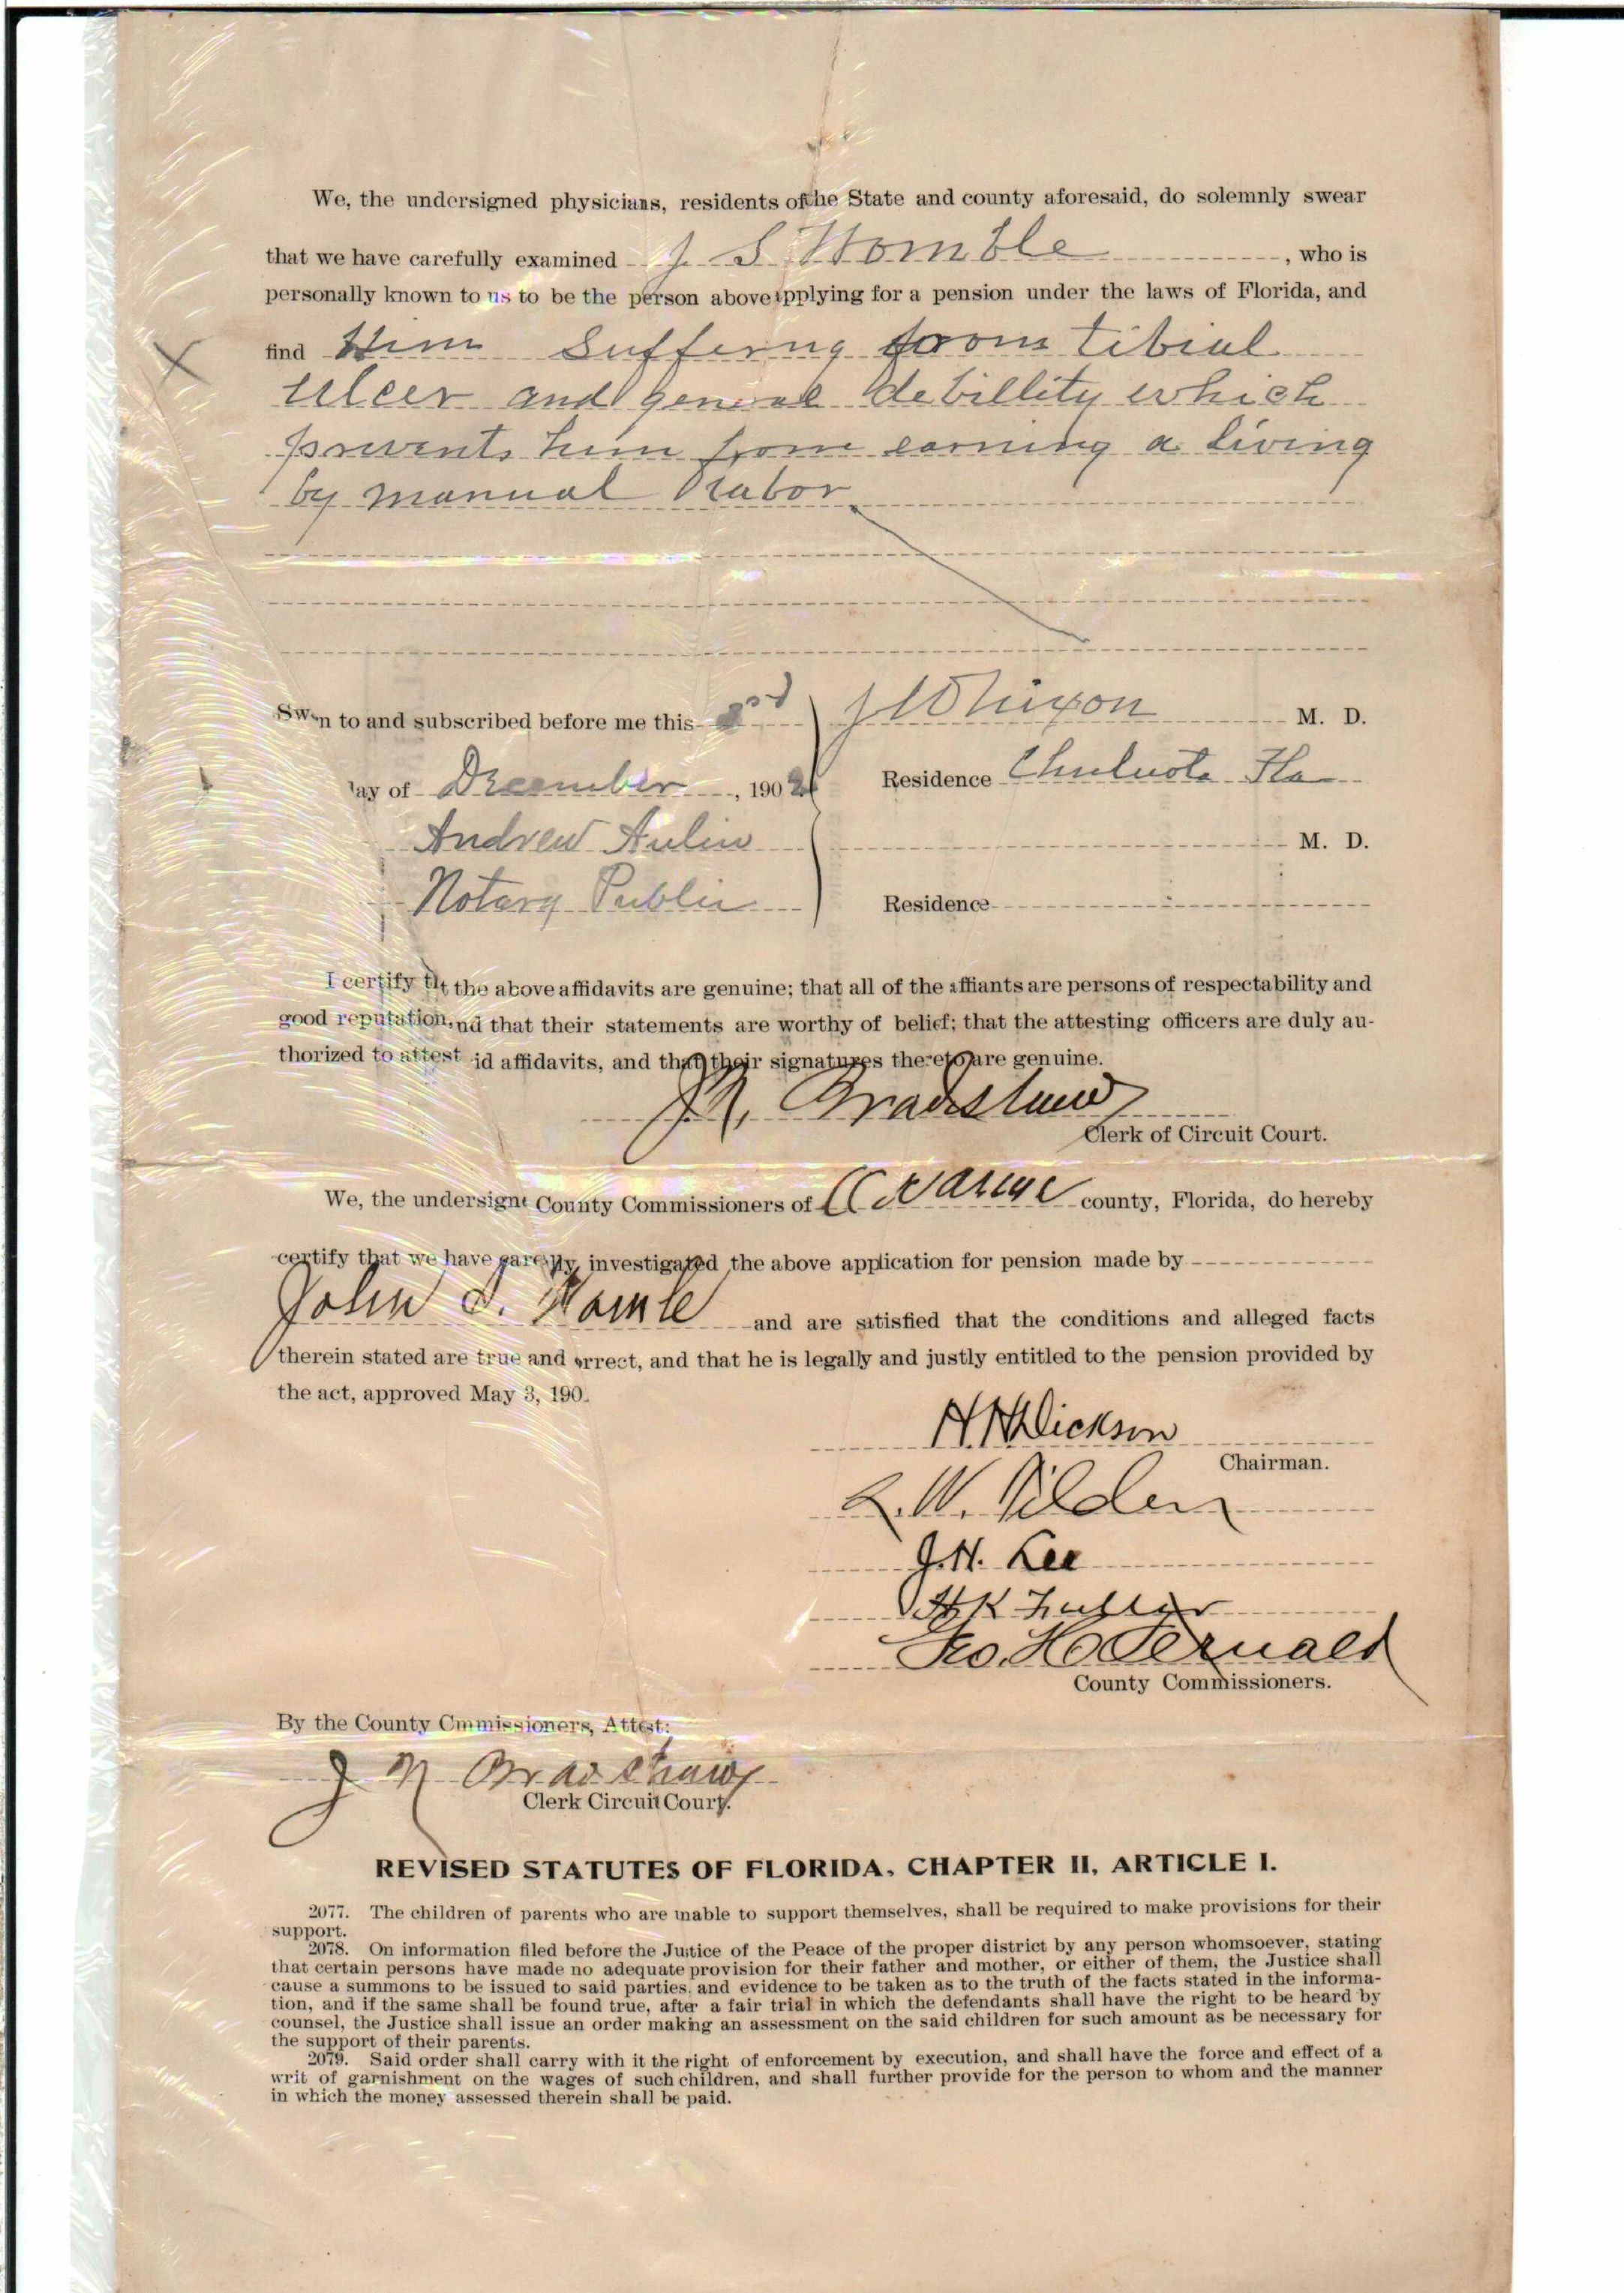 We, the undersigned physicians, residents of the State and county aforesaid, do solemnly swear
that we have carefully examined J S Womble, who is
personally known to us to be the person above applying for a pension under the laws of Florida, and
find Him Sufferng from tibial
Ulcer and general debillity which
prevents him from earning a living
by manual labor
Sworn to and subscribed before me this 3rd
M. D.
day of December, 1902
Residence Chuluota Fla
Andrew Aulin
M. D.
Notary Public
Residence
I certify tht the above affidavits are genuine; that all of the affiants are persons of respectability and
good reputation, nd that their statements are worthy of belief; that the attesting officers are duly au-
thorized to attest id affidavits, and that their signatures thereto are genuine.
J. N. Bradshaw
Clerk of Circuit Court.
We, the undersigne County Commissioners of Orange county, Florida, do hereby
certify that we have carefully investigated the above application for pension made by
John S. Womble and are satisfied that the conditions and alleged facts
therein stated are true and orrect, and that he is legally and justly entitled to the pension provided by
the act, approved May 3, 190.
H. H. Dickson
Chairman.
L. W. Tilden
J. H. Lee
H K Fuller
Geo. H. Fernald
County Commissioners.
By the County Cmmissioners, Attest:
J N Bradshaw
Clerk Circuit Court.
REVISED STATUTES OF FLORIDA, CHAPTER II, ARTICLE I.
2077. The children of parents who are unable to support themselves, shall be required to make provisions for their
support.
2078. On information filed before the Justice of the Peace of the proper district by any person whomsoever, stating
that certain persons have made no adequate provision for their father and mother, or either of them, the Justice shall
cause a summons to be issued to said parties, and evidence to be taken as to the truth of the facts stated in the informa-
tion, and if the same shall be found true, after a fair trial in which the defendants shall have the right to be heard by
counsel, the Justice shall issue an order making an assessment on the said children for such amount as be necessary for
the support of their parents.
2079. Said order shall carry with it the right of enforcement by execution, and shall have the force and effect of a
writ of garnishment on the wages of such children, and shall further provide for the person to whom and the manner
in which the money assessed therein shall be paid.